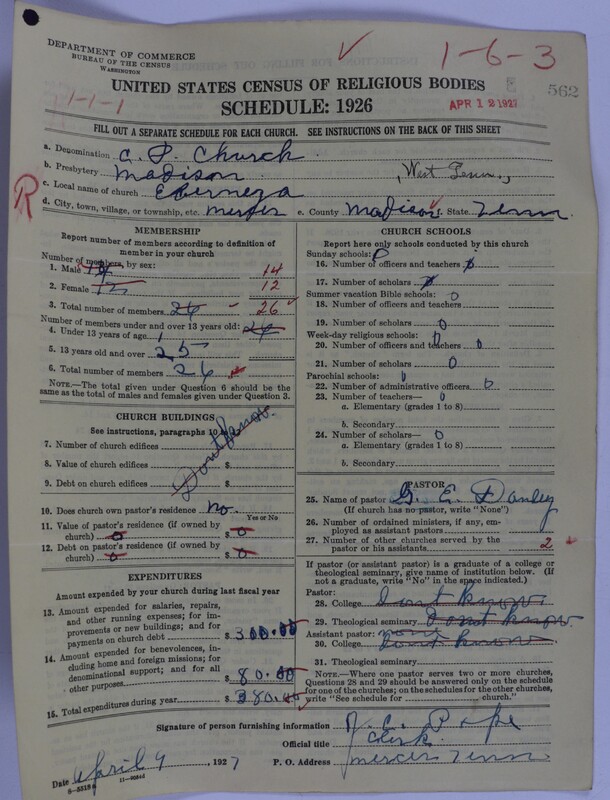 DEPARTMENT OF COMMERCE
BUREAU OF THE CENSUS
WASHINGTON
1-6-3
1-1-1
UNITED STATES CENSUS OF RELIGIOUS BODIES
SCHEDULE: 1926
APR 12 1927
562
FILL OUT A SEPARATE SCHEDULE FOR EACH CHURCH. SEE INSTRUCTIONS ON THE BACK OF THIS SHEET
a. Denomination C. P. Church
b. Presbytery Madison, West Tenn.,
c. Local name of church Ebernega
R
d. City, town, village, or township, etc. Mercer e. County Madison f. State Tenn.
MEMBERSHIP
Report number of members according to definition of
member in your church
Number of members, by sex:
1. Male 14
2. Female 12 12
3. Total number of members 26 26
Number of members under and over 13 years old:
4. Under 13 years of age 1
5. 13 years old and over 25
6. Total number of members 26
NOTE.—The total given under Question 6 should be
the same as the total of males and females given under Question 3.
CHURCH BUILDINGS
See instructions, paragraphs 10
7. Number of church edifices
8. Value of church edifices $
9. Debt on church edifices $
Dont Know
10. Does church own pastor's residence? No.
Yes or No
11. Value of pastor's residence (if owned by
church) 0 $ 0
12. Debt on pastor's residence (if owned by
church) 0 $ 0
EXPENDITURES
Amount expended by your church during last fiscal year
13. Amount expended for salaries, repairs,
and other running expenses; for im-
provements or new buildings; and for
payments on church debt $ 300.00
14. Amount expended for benevolences, in-
cluding home and foreign missions; for
denominational support; and for all
other purposes $ 80.00
15. Total expenditures during year $ 380.00
CHURCH SCHOOLS
Report here only schools conducted by this church
Sunday schools: 0
16. Number of officers and teachers
17. Number of scholars
Summer vacation Bible schools: 0
18. Number of officers and teachers
19. Number of scholars 0
Week-day religious schools: 0
20. Number of officers and teachers 0
21. Number of scholars 0
Parochial schools: 0
22. Number of administrative officers 0
23. Number of teachers— 0
a. Elementary (grades 1 to 8)
b. Secondary
24. Number of scholars— 0
a. Elementary (grades 1 to 8)
b. Secondary
PASTOR
25. Name of pastor G. E. Danley
(If church has no pastor, write "None")
26. Number of ordained ministers, if any, em-
ployed as assistant pastors
27. Number of other churches served by the
pastor or his assistants 2
If pastor (or assistant pastor) is a graduate of a college or
theological seminary, give name of institution below. (If
not a graduate, write "No" in the space indicated.)
Pastor:
28. College dont know
29. Theological seminary dont know
Assistant pastor:
30. College Dont know
31. Theological seminary
NOTE.—Where one pastor serves two or more churches,
Questions 28 and 29 should be answered only on the schedule
for one of the churches; on the schedules for the other churches,
write "See schedule for church."
Signature of person furnishing information
Official title Clerk
Date April 9, 1927 P. O. Address Mercer Tenn